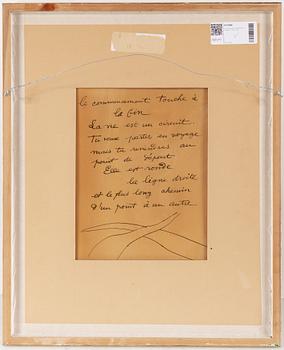 le commencement touche à
la fin
La vie est un circuit
Tu veux partir en voyage
mais tu reviendras au
point de départ
Elle est ronde
la ligne droite
et le plus long chemin
d'un point à un autre